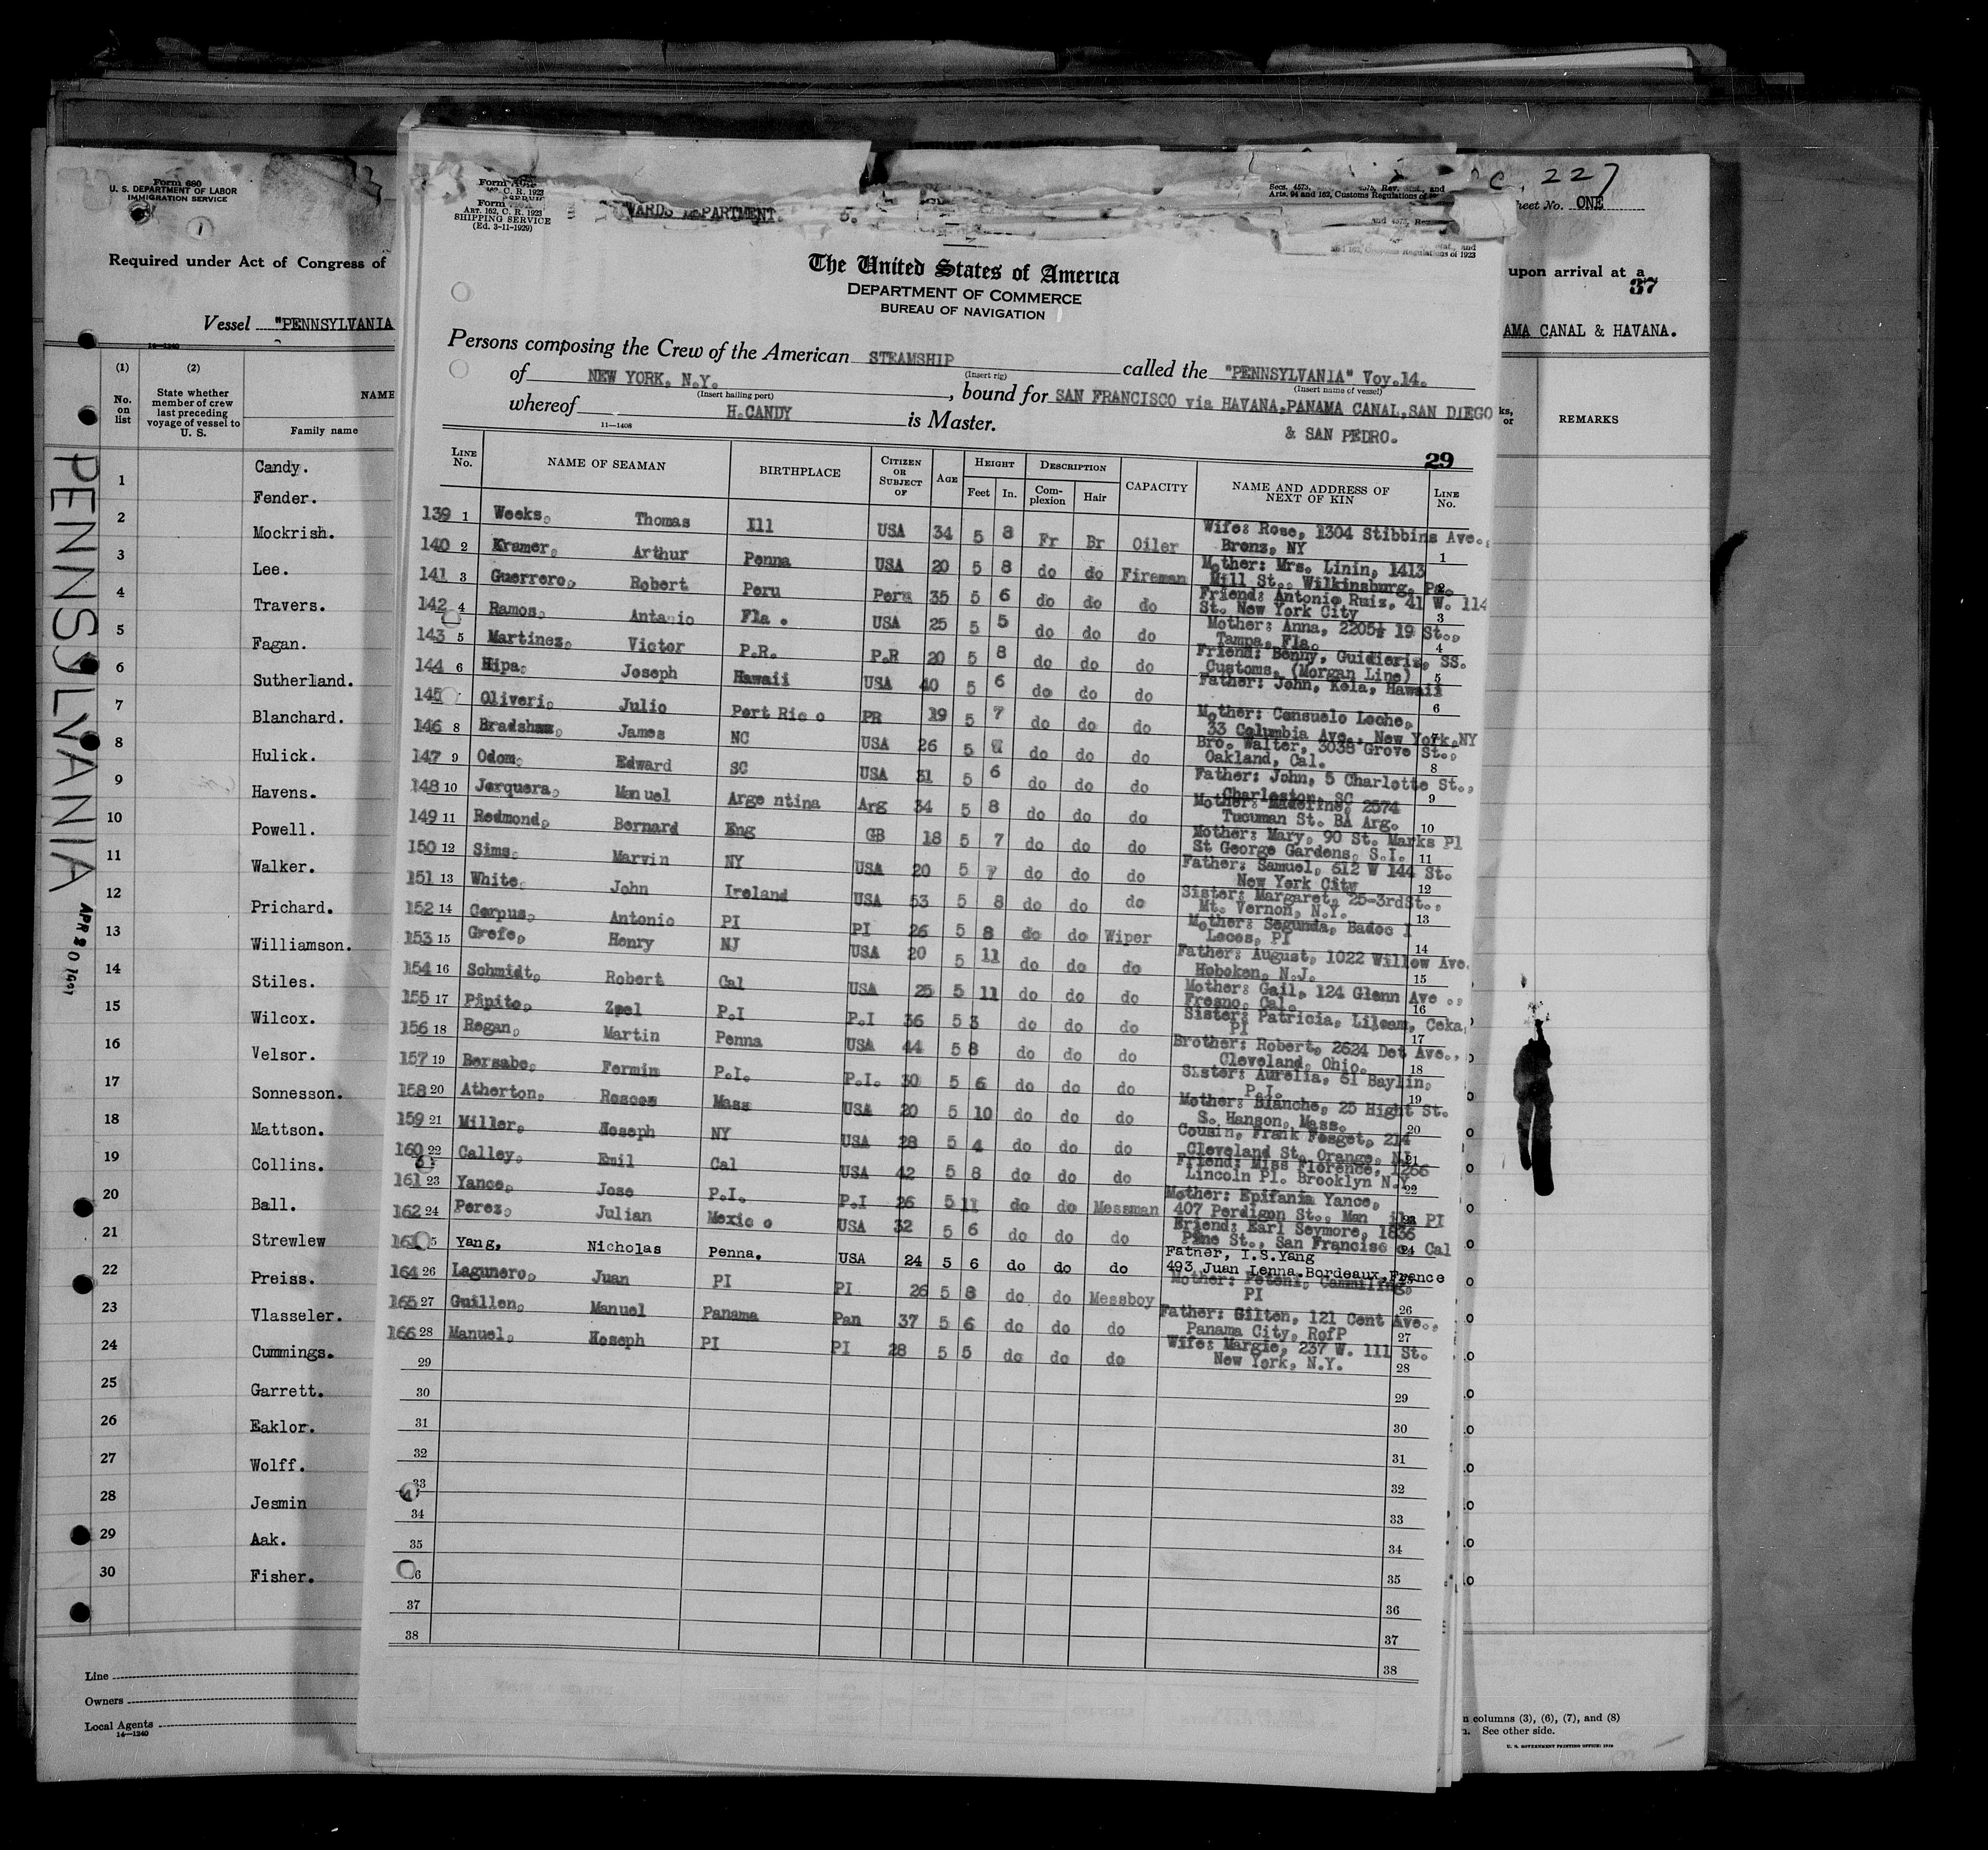 Form 680
U. S. DEPARTMENT OF LABOR
IMMIGRATION SERVICE
Required under Act of Congress of
Vessel "PENNSYLVANIA
14—1240
(1) (2)
No. on list
State whether member of crew last preceding voyage of vessel to U. S.
NAME
Family name
1 Candy.
Fender.
2 Mockrish.
3 Lee.
4 Travers.
5 Fagan.
6 Sutherland.
7 Blanchard.
8 Hulick.
9 Havens.
10 Powell.
11 Walker.
12 Prichard.
13 Williamson.
14 Stiles.
15 Wilcox.
16 Velsor.
17 Sonnesson.
18 Mattson.
19 Collins.
20 Ball.
21 Strewlew
22 Preiss.
23 Vlasseler.
24 Cummings.
25 Garrett.
26 Eaklor.
27 Wolff.
28 Jesmin
29 Aak.
30 Fisher.
Line
Owners
Local Agents
14—1240
PENNSYLVANIA
APR 20
Form
C. R. 1923
Form
ART. 162, C. R. 1923
SHIPPING SERVICE
(Ed. 3-11-1929)
WARDS DEPARTMENT.
Secs. 4573, 4575, Rev. and
Arts. 94 and 162, Customs Regulations of
and 162, Customs Regulations of 1923
The United States of America
DEPARTMENT OF COMMERCE
BUREAU OF NAVIGATION
Persons composing the Crew of the American STEAMSHIP called the "PENNSYLVANIA" Voy.14.
(Insert rig) (Insert name of vessel)
of NEW YORK, N.Y., bound for SAN FRANCISCO via HAVANA,PANAMA CANAL,SAN DIEGO
(Insert hailing port)
whereof H.CANDY is Master. & SAN PEDRO.
11—1408
29
LINE No. NAME OF SEAMAN BIRTHPLACE CITIZEN OR SUBJECT OF AGE HEIGHT DESCRIPTION CAPACITY NAME AND ADDRESS OF NEXT OF KIN LINE No.
Feet In. Complexion Hair
139 1 Weeks, Thomas Ill USA 34 5 8 Fr Br Oiler Wife: Rose, 1304 Stibbins Ave.,
Bronz, NY 1
140 2 Kramer, Arthur Penna USA 20 5 8 do do Fireman Mother: Mrs. Linin, 1413
Mill St., Wilkinsburg, Pa.
141 3 Guerrero, Robert Peru Peru 35 5 6 do do do Friend: Antonio Ruiz, 41 W. 114
St. New York City 3
142 4 Ramos, Antanio Fla. USA 25 5 5 do do do Mother: Anna, 2205½ 19 St.,
Tampa, Fla. 4
143 5 Martinez, Victor P.R. P.R 20 5 8 do do do Friend: Benny, Guidieriz, SS.
Customs, (Morgan Line) 5
144 6 Hipa, Joseph Hawaii USA 40 5 6 do do do Father: John, Kola, Hawaii
6
145 Oliveri, Julio Port Rico PR 19 5 7 do do do Mother: Consuelo Loche,
33 Columbia Ave., New York,NY
146 8 Bradshaw, James NC USA 26 5 do do do Bro. Walter, 3038 Grove St.,
Oakland, Cal. 8
147 9 Odom, Edward SC USA 31 5 6 do do do Father: John, 5 Charlotte St.,
Charleston, SC 9
148 10 Jorquera, Manuel Argentina Arg 34 5 8 do do do Mother: Maderine, 2574
Tucuman St. BA Arg. 10
149 11 Redmond, Bernard Eng GB 18 5 7 do do do Mother: Mary, 90 St. Marks Pl
St George Gardens, S.I. 11
150 12 Sims, Marvin NY USA 20 5 7 do do do Father: Samuel, 612 W 144 St.
New York City 12
151 13 White, John Ireland USA 53 5 8 do do do Sister: Margaret, 25-3rdSt.,
Mt. Vernon, N.Y. 13
152 14 Corpus, Antonio PI PI 26 5 8 do do Wiper Mother: Segunda, Badoc I
Locos, PI 14
153 15 Grefe, Henry NJ USA 20 5 11 do do do Father: August, 1022 Willow Ave.
Hoboken, N.J. 15
154 16 Schmidt, Robert Cal USA 25 5 11 do do do Mother: Gail, 124 Glenn Ave.,
Fresno, Cal. 16
155 17 Pipito, Zoel P.I P.I 36 5 3 do do do Sister: Patricia, Liloam, Ceka,
PI 17
156 18 Regan, Martin Penna USA 44 5 8 do do do Brother: Robert, 2624 Det Ave.,
Cleveland, Ohio. 18
157 19 Bersabe, Fermin P.I. P.I. 30 5 6 do do do Sister: Aurelia, 61 Baylin,
P.I. 19
158 20 Atherton, Roscoe Mass USA 20 5 10 do do do Mother: Blanche, 25 Hight St.
S. Hanson, Mass. 20
159 21 Miller, Hoseph NY USA 28 5 4 do do do Cousin, Frank Fosget, 214
Cleveland St. Orange, NJ 21
160 22 Calley, Emil Cal USA 42 5 8 do do do Friend: Miss Florence, 1266
Lincoln Pl. Brooklyn N.Y. 22
161 23 Yance, Jose P.I. P.I 26 5 11 do do Messman Mother: Epifania Yance,
407 Perdigon St., Manila PI
162 24 Perez, Julian Mexico USA 32 5 6 do do do Friend: Earl Seymore, 1836
Pine St., San Francisco Cal
5 Yang, Nicholas Penna. USA 24 5 6 do do do Father, I.S.Yang
493 Juan Lenna.Bordeaux,France
164 26 Lagunero, Juan PI PI 26 5 8 do do Messboy Mother: Peteni, Cammiling,
PI 26
165 27 Guillen, Manuel Panama Pan 37 5 6 do do do Father: Gilten, 121 Cent Ave.,
Panama City, RofP 27
166 28 Manuel, Hoseph PI PI 28 5 5 do do do Wife: Margie, 237 W. 111 St.
New York, N.Y. 28
29 29
30 30
31 31
32 32
33 33
34 34
35 35
36 36
37 37
38 38
C. 227
Sheet No. ONE
upon arrival at a
37
AMA CANAL & HAVANA.
REMARKS
n columns (3), (6), (7), and (8)
See other side.
U. S. GOVERNMENT PRINTING OFFICE